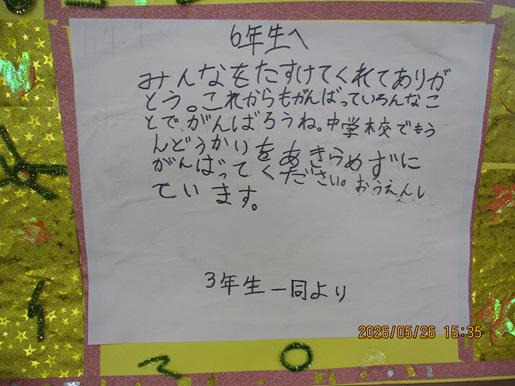 6年生へ
みんなをたすけてくれてありが
とう。これからもがんばっていろんなこ
とで、がんばろうね。中学校でもう
んどうかいをあきらめずに
がんばってください。おうえんし
ています。
3年生一同より
2026/05/26 15:35